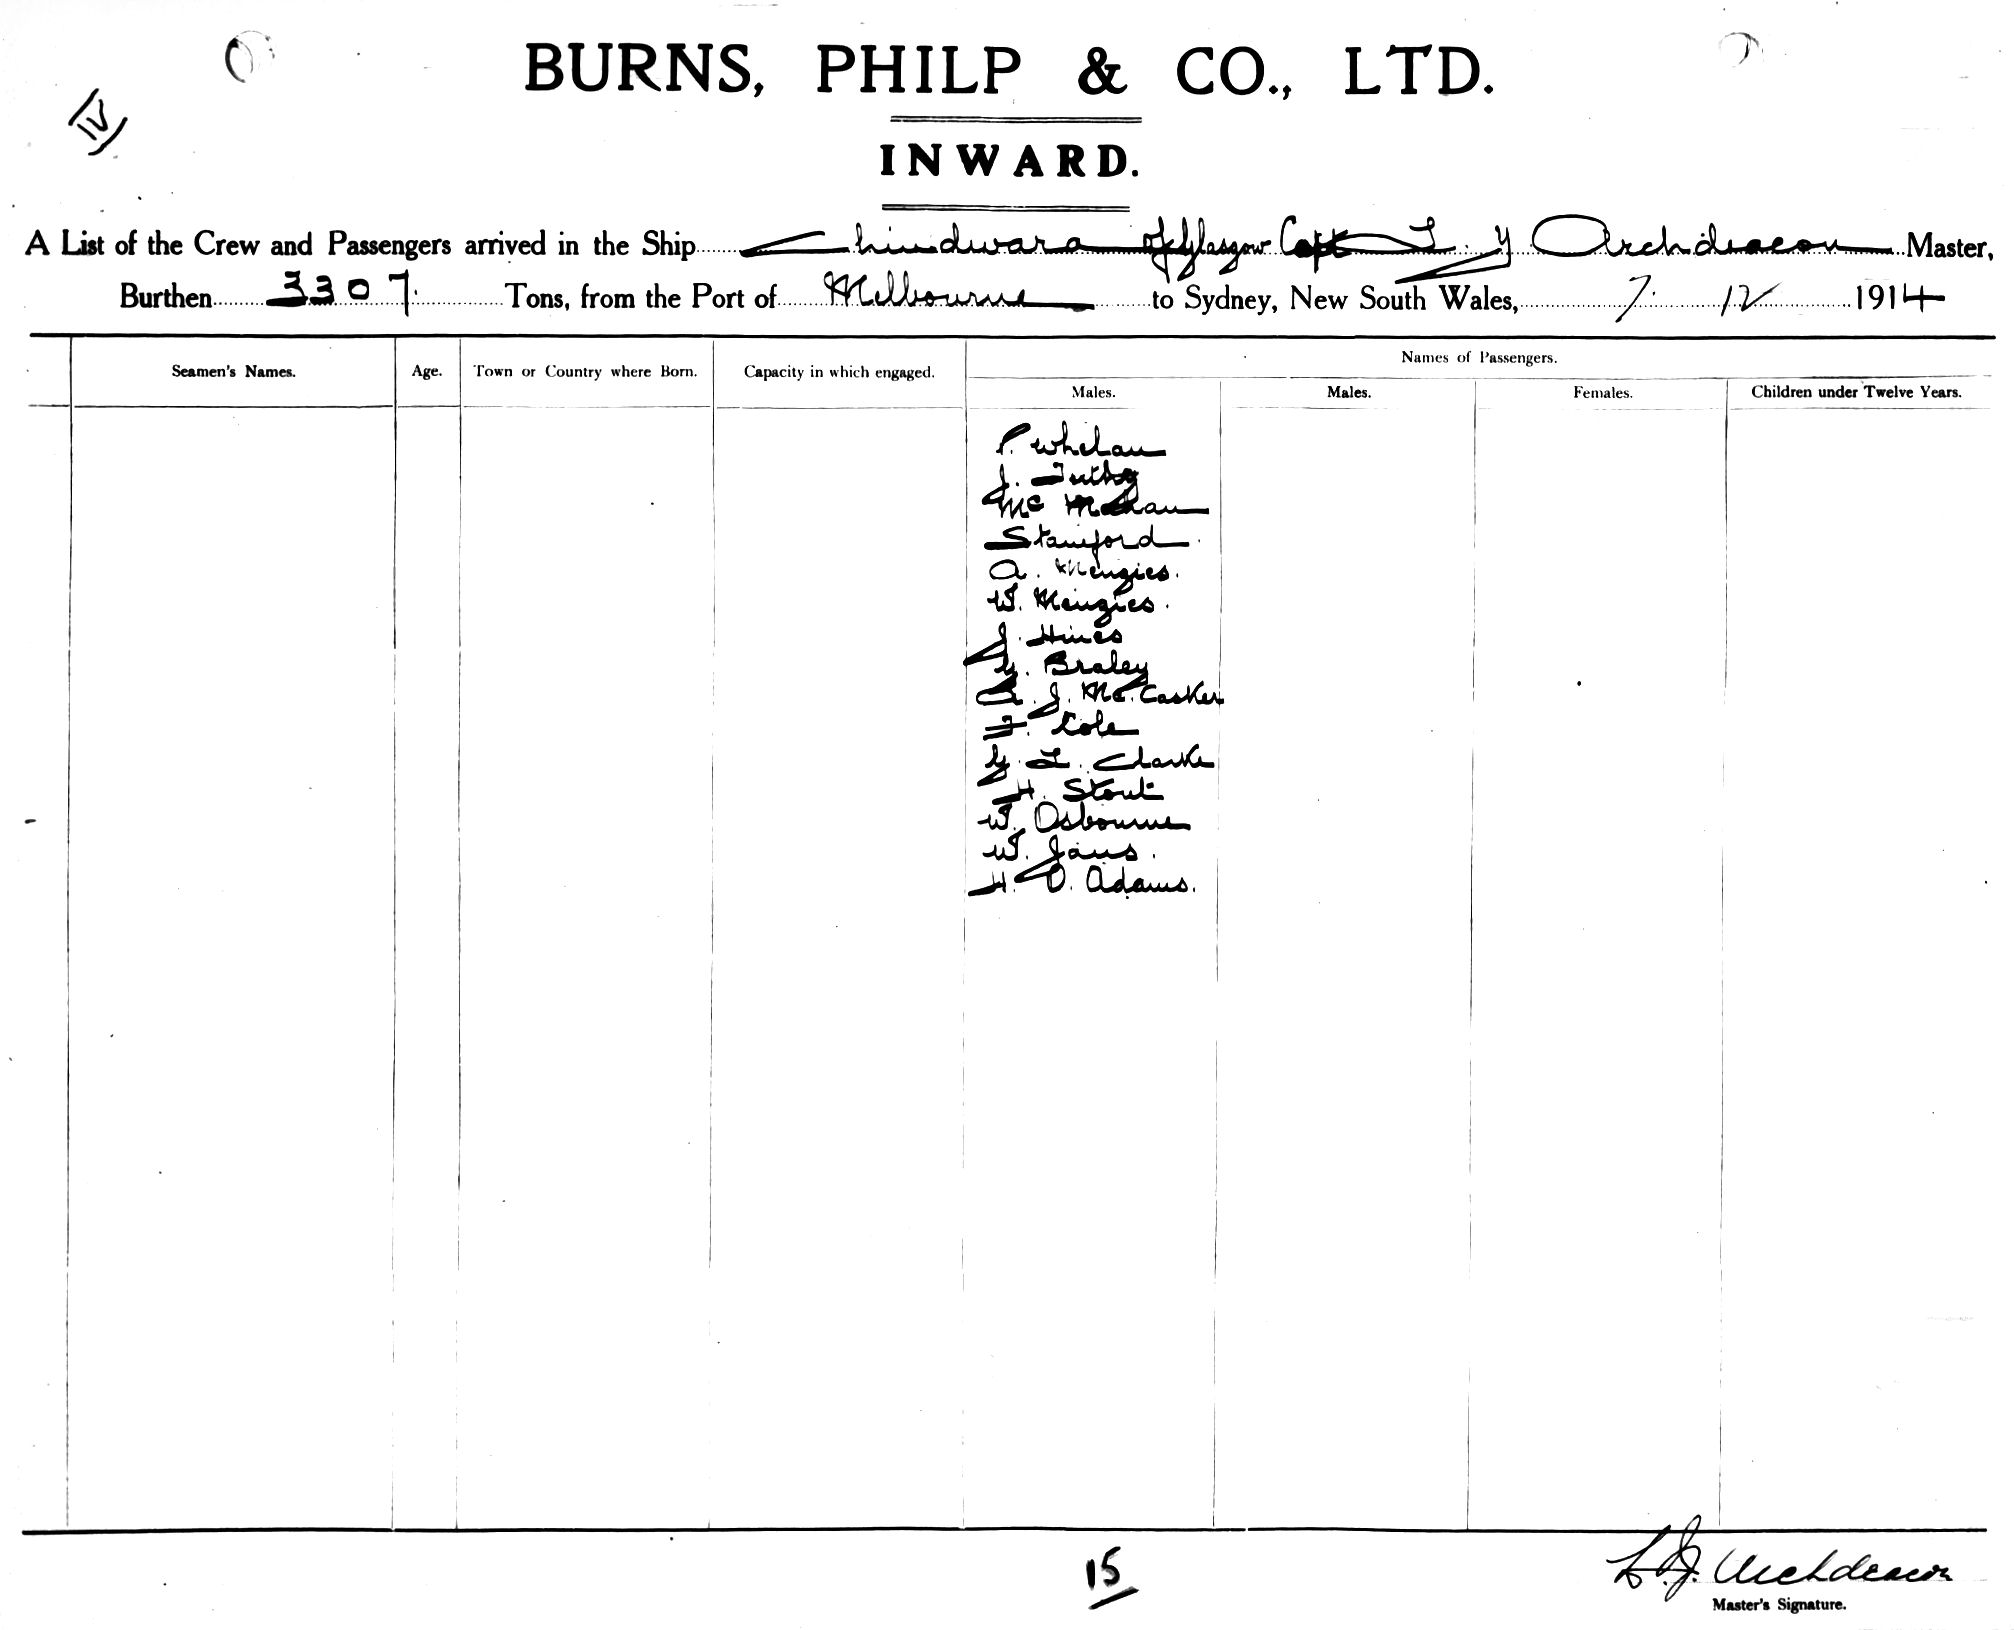 IV
BURNS, PHILP & CO., LTD.
INWARD.
A List of the Crew and Passengers arrived in the Ship Chindwara of Glasgow Capt Archdeacon Master,
Burthen 3307 Tons, from the Port of Melbourne to Sydney, New South Wales, 7. 12 1914
Seamen's Names. Age. Town or Country where Born. Capacity in which engaged. Names of Passengers.
Males. Males. Females. Children under Twelve Years.
P. Whelan
J.
Mc
Stamford
A. Menzies.
W. Menzies.
J. Hines
G. Braley
A. J. Mc. Casker
F. Cole
G. L. Clarke
H. Stout
W. Osbourne
W. Jans.
H. O. Adams.
15
L. J. Archdeacon
Master's Signature.